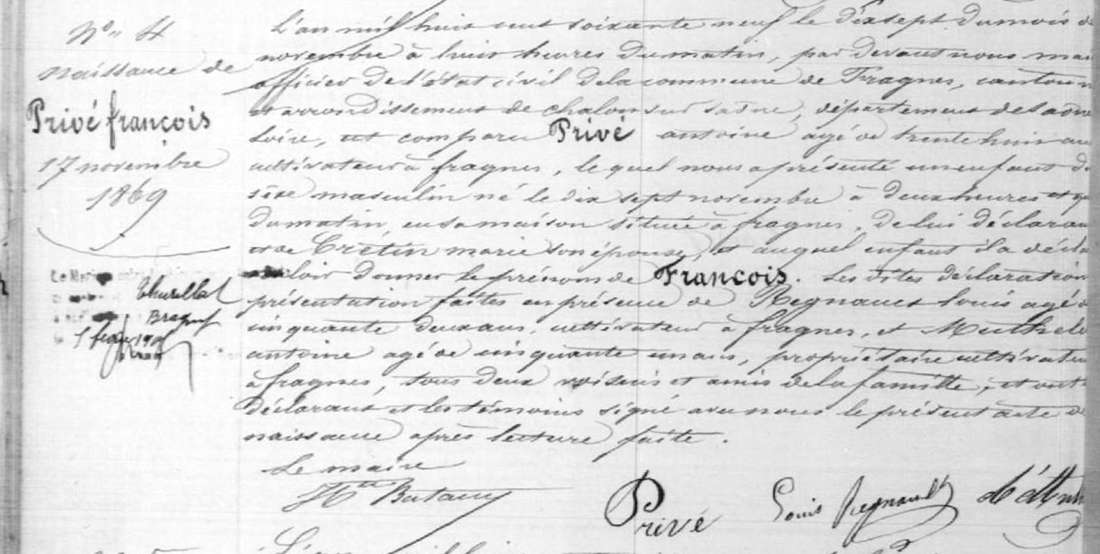 N° 4
Naissance de
Privé françois
17 novembre
1869
L'an mil huit cent soixante neuf le dix sept du mois de
novembre à huit heures du matin, par devant nous maire
officier de l'état civil de la commune de Fragnes, canton
et arrondissement de chalon sur saône, département de saône
loire, est comparu Privé antoine agé de trente huit ans
cultivateur à fragnes, lequel nous a présenté un enfant de
sèxe masculin né le dix sept novembre à deux heures et
du matin, en sa maison située à fragnes, de lui déclarant
et de Cretin marie son épouse, et auquel enfant il a déclaré
vouloir donner le prénom de François. Les dites déclaration
présentation faites en présence de Regnault louis agé de
cinquante deux ans, cultivateur à fragnes, et
antoine agé de cinquante un ans, propriétaire cultivateur
à fragnes, tous deux voisins et amis de la famille, et ont
déclarant et les témoins signé avec nous le présent acte de
naissance après lecture faite.
Le maire
Privé
Louis Regnault
Le Mariage